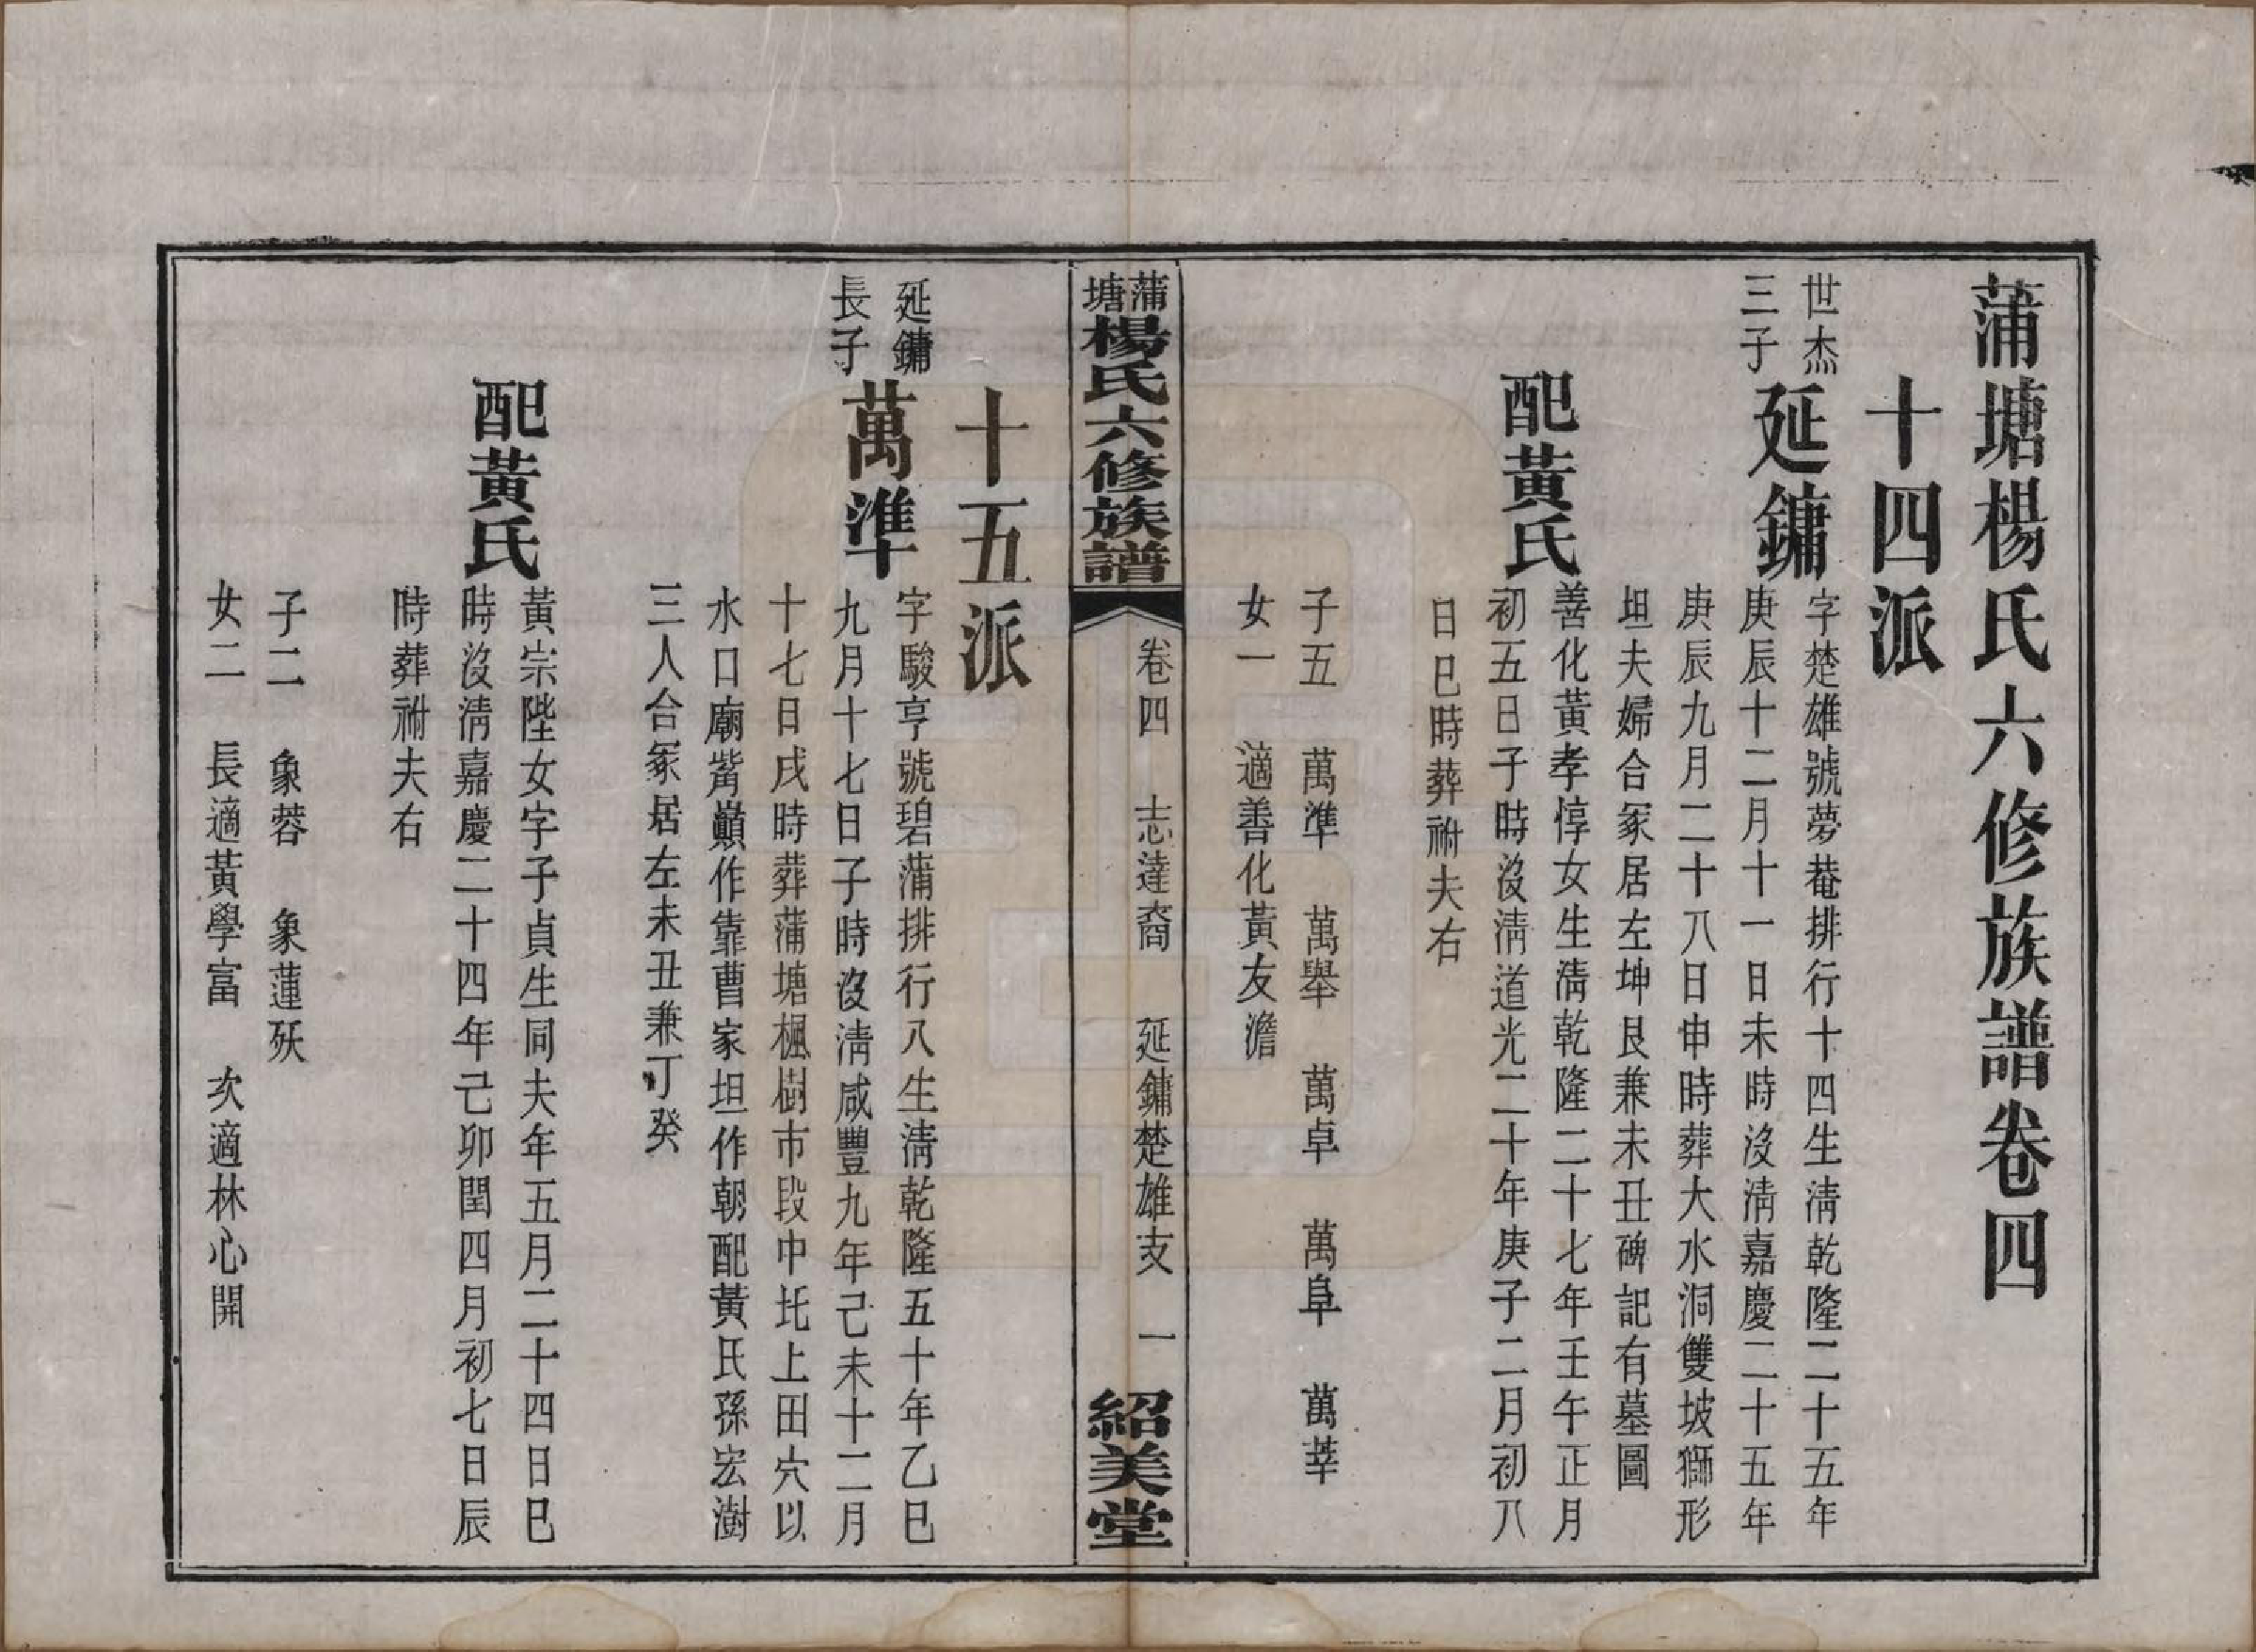 蒲塘楊氏六修族譜卷四
十四派
世杰
三子
延鏞
字楚雄號夢菴排行十四生清乾隆二十五年
庚辰十二月十一日未時沒清嘉慶二十五年
庚辰九月二十八日申時葬大水洞雙坡獅形
坦夫婦合冢居左坤艮兼未丑碑記有墓圖
配黃氏
善化黃孝惇女生清乾隆二十七年壬午正月
初五日子時沒清道光二十年庚子二月初八
日巳時葬祔夫右
子五 萬準 萬舉 萬卓 萬阜 萬莘
女一 適善化黃友澹
蒲塘楊氏六修族譜 卷四 志達裔 延鏞楚雄支 一 紹美堂
十五派
延鏞
長子
萬準
字駿亨號碧蒲排行八生清乾隆五十年乙巳
九月十七日子時沒清咸豐九年己未十二月
十七日戌時葬蒲塘楓樹市段中圫上田穴以
水口廟觜巔作靠曹家坦作朝配黃氏孫宏澍
三人合冢居左未丑兼丁癸
配黃氏
黃宗陛女字子貞生同夫年五月二十四日巳
時沒清嘉慶二十四年己卯閏四月初七日辰
時葬祔夫右
子二 象蓉 象蓮殀
女二 長適黃學富 次適林心開